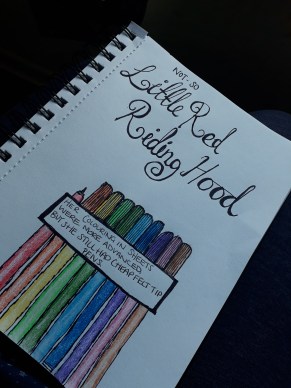 NOT-SO
Little Red
Riding Hood
HER COLOURING IN SHEETS
WERE MORE ADVANCED
BUT SHE STILL HAD CHEAP FELT TIP
PENS